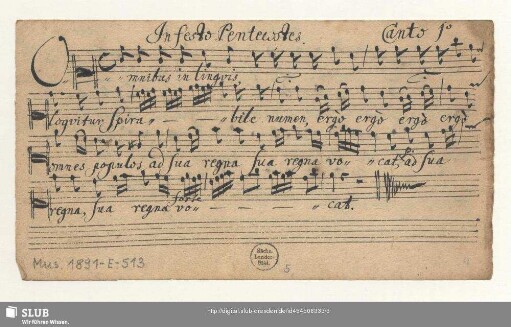 In festo Pentecostes. Canto 1º
Omnibus in linguis,
loqvitur Spira - - - bile numen, ergo ergo ergo ergo
omnes populos ad sua regna sua regna vo - - cat, ad sua
regna, sua regna vo - - - - cat.
forte
Mus. 1891-E-513
Sächs.
Landes-
Bibl.
5
SLUB
Wir führen Wissen.